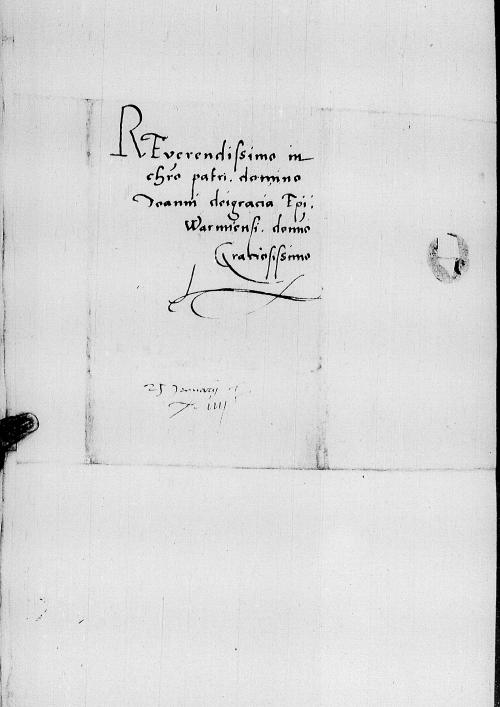 REverendissimo in
chro patri. domino
Joanni deigracia Epi:
Warmiensi. domio
Gratiosissimo
25 Januarij